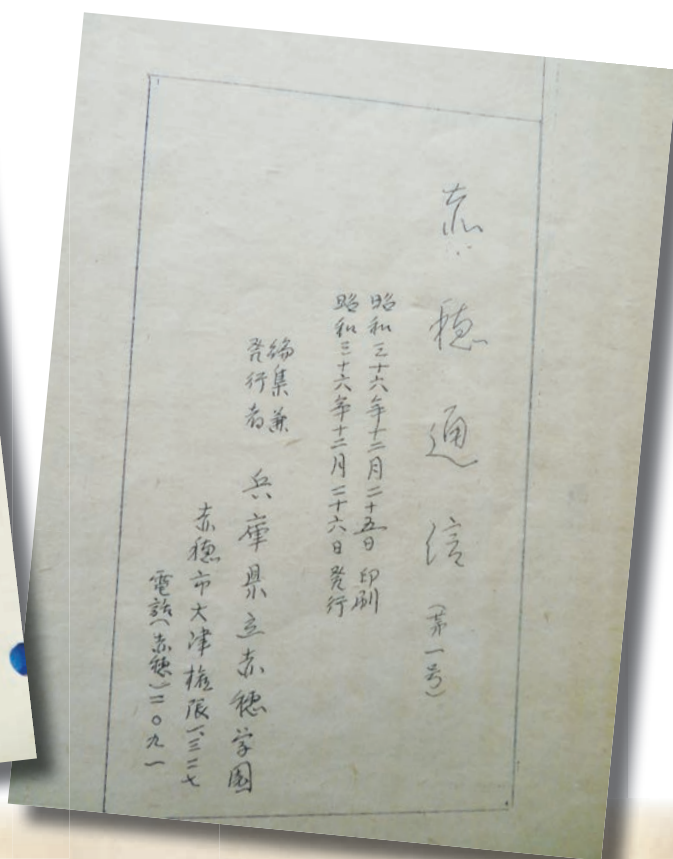 赤穂通信(第一号)
昭和三十六年十二月二十五日 印刷
昭和三十六年十二月二十六日 発行
編集兼
発行者
兵庫県立赤穂学園
赤穂市大津権限一三二七
電話(赤穂)二〇九一